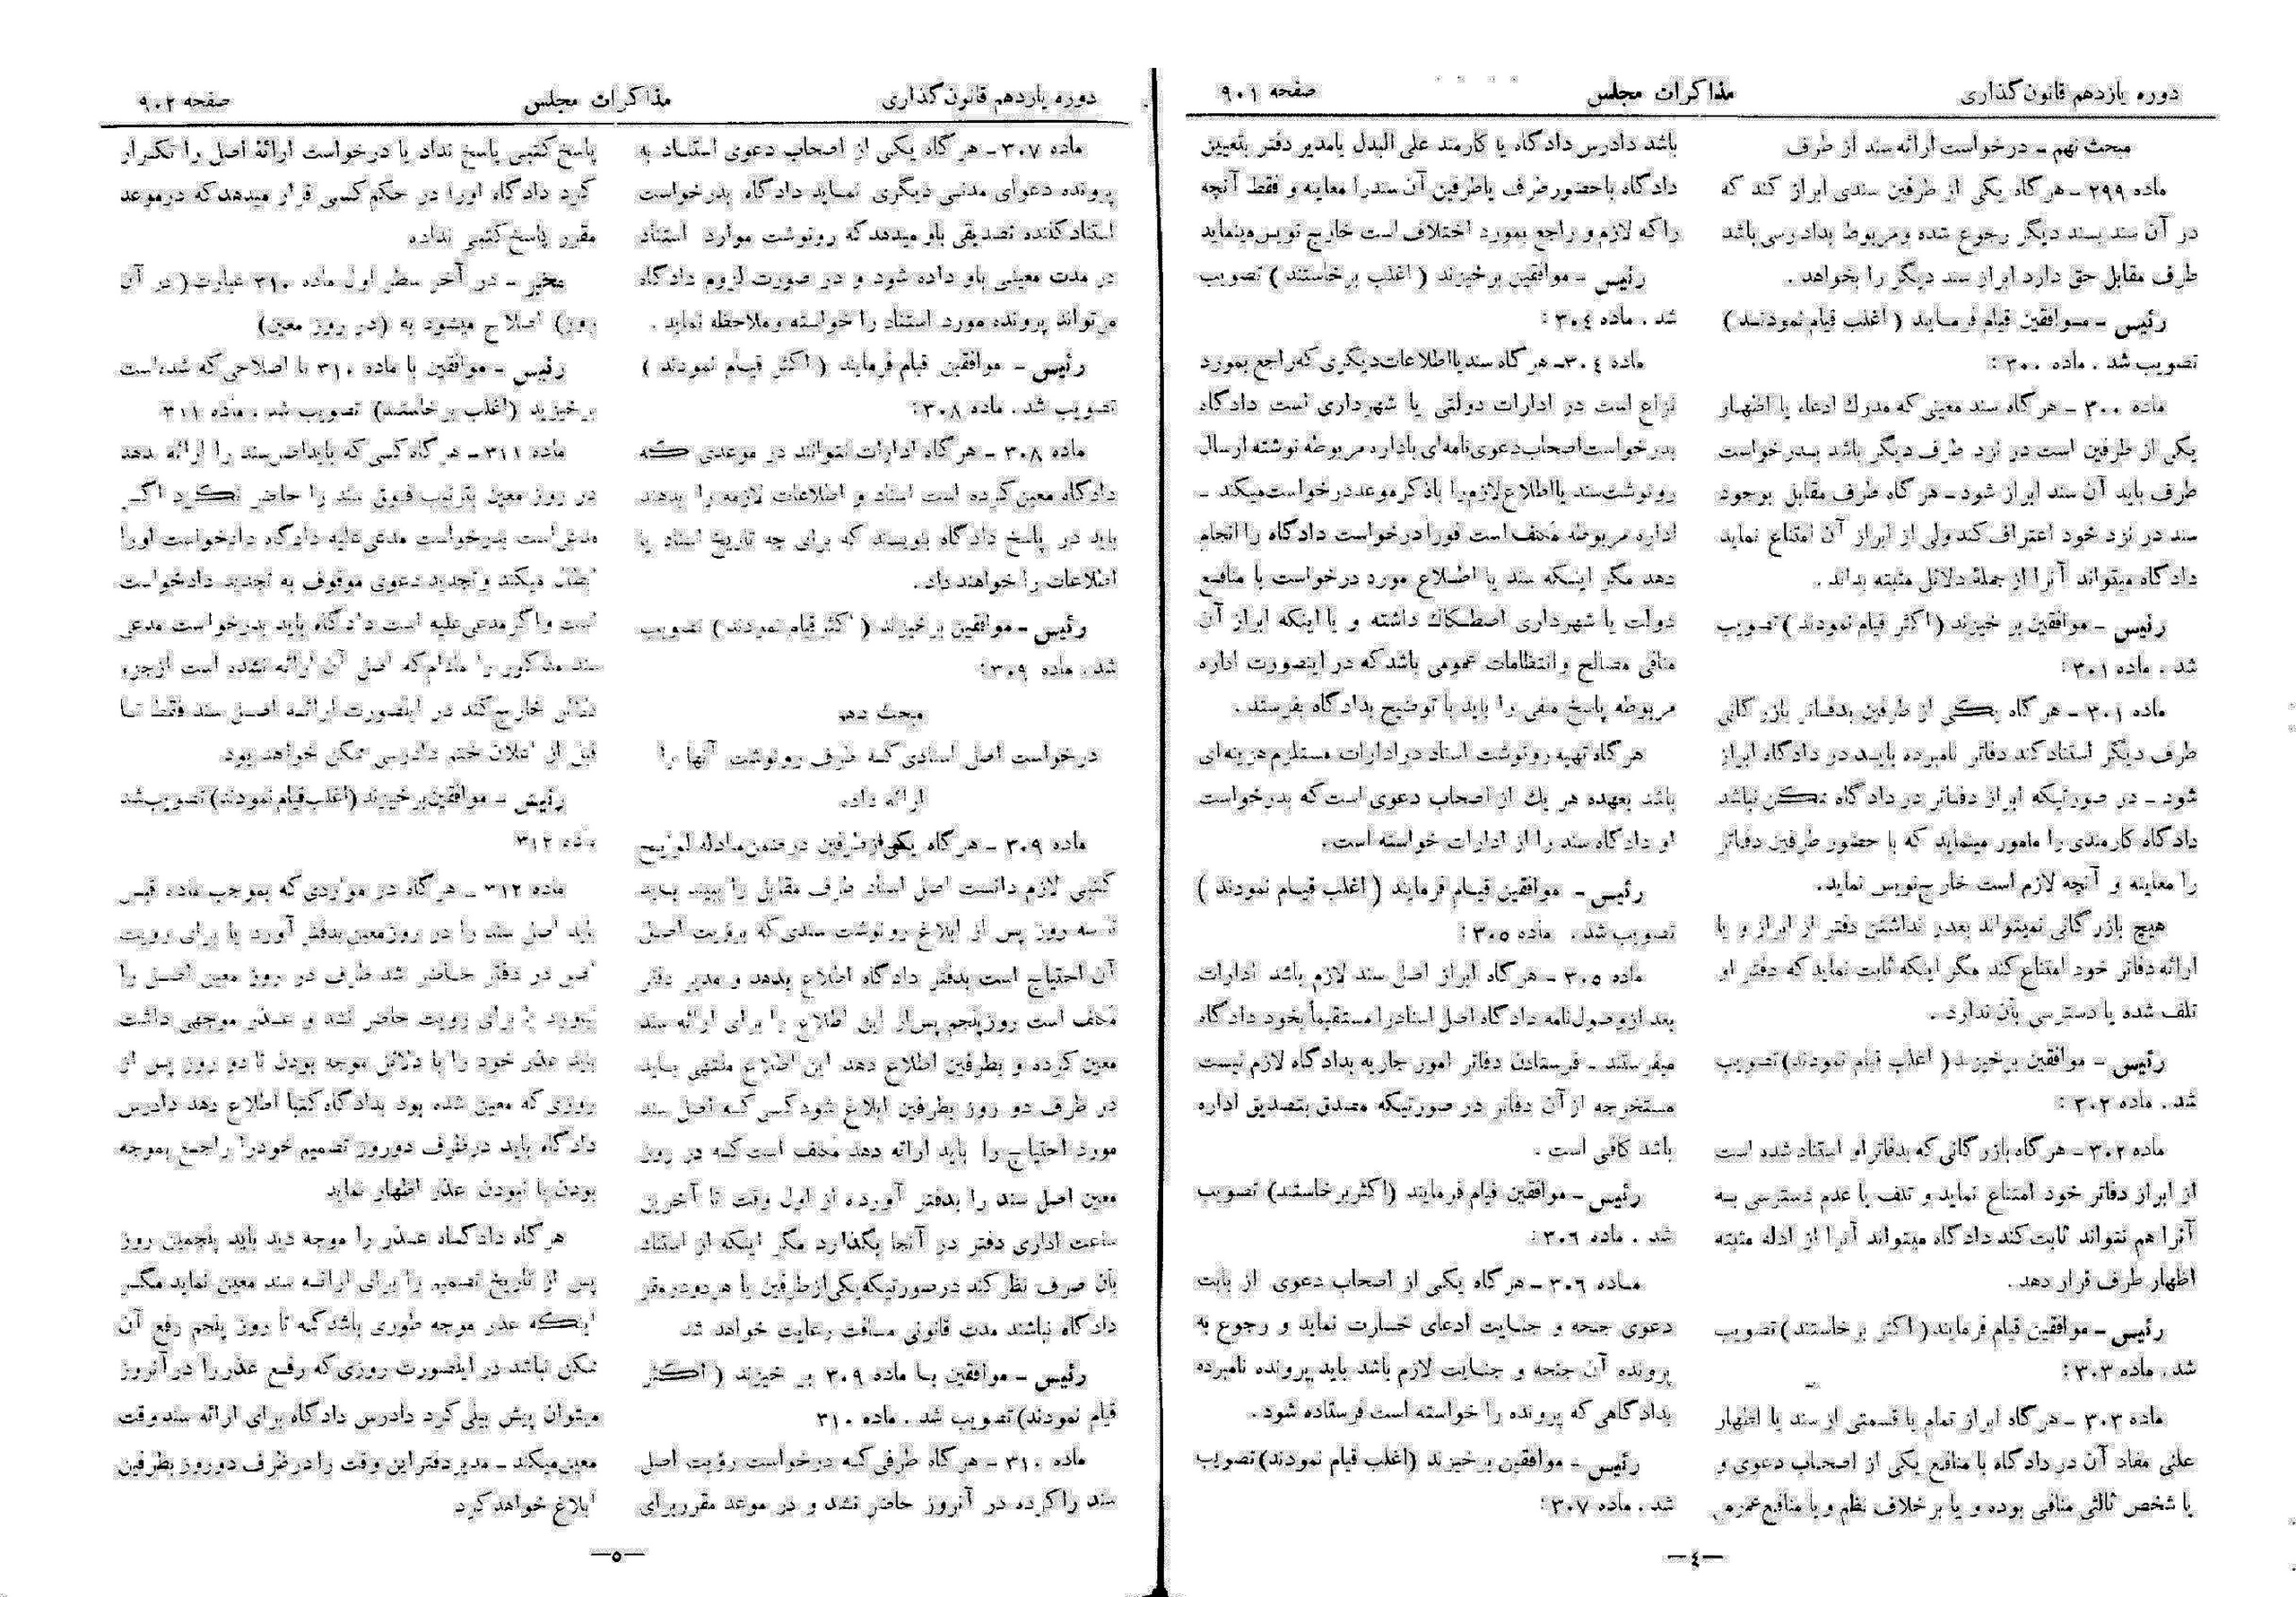 دوره یازدهم قانون‌گذاری
مذاکرات مجلس
صفحه ۹۰۱
مبحث نهم ـ درخواست ارائه سند از طرف
ماده ۲۹۹ ـ هر گاه یکی از طرفین سندی ابراز کند که
در آن سند بسند دیگر رجوع شده و مربوط بدادرسی باشد
طرف مقابل حق دارد ابراز سند دیگر را بخواهد .
رئیس ـ موافقین قیام فرمایند ( اغلب قیام نمودند )
تصویب شد . ماده ۳۰۰ :
ماده ۳۰۰ ـ هر گاه سند معینی که مدرک ادعاء یا اظهار
یکی از طرفین است در نزد طرف دیگر باشد بدرخواست
طرف باید آن سند ابراز شود ـ هر گاه طرف مقابل بوجود
سند در نزد خود اعتراف کند ولی از ابراز آن امتناع نماید
دادگاه میتواند آنرا از جملهٔ دلائل مثبته بداند .
رئیس ـ موافقین بر خیزند ( اکثر قیام نمودند ) تصویب
شد . ماده ۳۰۱ :
ماده ۳۰۱ ـ هر گاه یکی از طرفین بدفاتر بازرگانی
طرف دیگر استناد کند دفاتر نامبرده باید در دادگاه ابراز
شود ـ در صورتیکه ابراز دفاتر در دادگاه ممکن نباشد
دادگاه کارمندی را مامور مینماید که با حضور طرفین دفاتر
را معاینه و آنچه لازم است خارج‌نویس نماید.
هیچ بازرگانی نمیتواند بعذر نداشتن دفتر از ابراز و یا
ارائه دفاتر خود امتناع کند مگر اینکه ثابت نماید که دفتر او
تلف شده یا دسترسی بآن ندارد .
رئیس ـ موافقین برخیزند ( اغلب قیام نمودند) تصویب
شد . ماده ۳۰۲ :
ماده ۳۰۲ ـ هر گاه بازرگانی که بدفاتر او استناد شده است
از ابراز دفاتر خود امتناع نماید و تلف یا عدم دسترسی به
آنرا هم نتواند ثابت کند دادگاه میتواند آنرا از ادله مثبته
اظهار طرف قرار دهد.
رئیس ـ موافقین قیام فرمایند ( اکثر بر خاستند ) تصویب
شد . ماده ۳۰۳ :
ماده ۳۰۳ ـ هر گاه ابراز تمام یا قسمتی از سند یا اظهار
علنی مفاد آن در دادگاه با منافع یکی از اصحاب دعوی و
یا شخص ثالثی منافی بوده و یا بر خلاف نظم و یا منافع عمومی
باشد دادرس دادگاه یا کارمند علی البدل یا مدیر دفتر بتعیین
دادگاه با حضور طرف یا طرفین آن سند را معاینه و فقط آنچه
را که لازم و راجع بمورد اختلاف است خارج نویس مینماید
رئیس ـ موافقین برخیزند ( اغلب برخاستند ) تصویب
شد . ماده ۳۰٤ :
ماده ۳۰٤ ـ هر گاه سند یا اطلاعات دیگری که راجع بمورد
نزاع است در ادارات دولتی یا شهرداری است دادگاه
بدرخواست اصحاب دعوی نامه‌ای باداره مربوطه نوشته ارسال
رونوشت سند یا اطلاع لازم را با ذکر موعد درخواست میکند ـ
اداره مربوطه مکلف است فورا درخواست دادگاه را انجام
دهد مگر اینکه سند یا اطلاع مورد درخواست با منافع
دولت یا شهرداری اصطکاك داشته و یا اینکه ابراز آن
منافی مصالح و انتظامات عمومی باشد که در اینصورت اداره
مربوطه پاسخ منفی را باید با توضیح بدادگاه بفرستد.
هر گاه تهیه رونوشت اسناد در ادارات مستلزم هزینه‌ای
باشد بعهده هر یك از اصحاب دعوی است که بدرخواست
او دادگاه سند را از ادارات خواسته است.
رئیس ـ موافقین قیام فرمایند ( اغلب قیام نمودند )
تصویب شد . ماده ۳۰۵ :
ماده ۳۰۵ ـ هر گاه ابراز اصل سند لازم باشد ادارات
بعد از وصول نامه دادگاه اصل اسناد را مستقیماً بخود دادگاه
میفرستند ـ فرستادن دفاتر امور جاریه بدادگاه لازم نیست
مستخرجه از آن دفاتر در صورتیکه مصدق بتصدیق اداره
باشد کافی است .
رئیس ـ موافقین قیام فرمایند (اکثر برخاستند) تصویب
شد . ماده ۳۰۶ :
ماده ۳۰۶ ـ هر گاه یکی از اصحاب دعوی از بابت
دعوی جنحه و جنایت ادعای خسارت نماید و رجوع به
پرونده آن جنحه و جنایت لازم باشد باید پرونده نامبرده
بدادگاهی که پرونده را خواسته است فرستاده شود.
رئیس ـ موافقین برخیزند (اغلب قیام نمودند) تصویب
شد . ماده ۳۰۷ :
ـ٤ـ
دوره یازدهم قانون‌گذاری
مذاکرات مجلس
صفحه ۹۰۲
ماده ۳۰۷ ـ هر گاه یکی از اصحاب دعوی استناد به
پرونده دعوای مدنی دیگری نماید دادگاه بدرخواست
استناد کننده تصدیقی باو میدهد که رونوشت موارد استناد
در مدت معینی باو داده شود و در صورت لزوم دادگاه
میتواند پرونده مورد استناد را خواسته و ملاحظه نماید .
رئیس ـ موافقین قیام فرمایند ( اکثر قیام نمودند )
تصویب شد . ماده ۳۰۸ :
ماده ۳۰۸ ـ هر گاه ادارات نتوانند در موعدی که
دادگاه معین کرده است اسناد و اطلاعات لازمه را بدهند
باید در پاسخ دادگاه بنویسند که برای چه تاریخ اسناد یا
اطلاعات را خواهند داد.
رئیس ـ موافقین برخیزند ( اکثر قیام نمودند) تصویب
شد . ماده ۳۰۹ :
مبحث دهم
درخواست اصل اسنادی که طرف رونوشت آنها را
ارائه داده
ماده ۳۰۹ ـ هر گاه یکی از طرفین در ضمن مبادله لوایح
کتبی لازم دانست اصل اسناد طرف مقابل را ببیند باید
تا سه روز پس از ابلاغ رونوشت سندی که برؤیت اصل
آن احتیاج است بدفتر دادگاه اطلاع بدهد و مدیر دفتر
مکلف است روز پنجم پس از این اطلاع را برای ارائه سند
معین کرده و بطرفین اطلاع دهد این اطلاع منتهی باید
در ظرف دو روز بطرفین ابلاغ شود کسی که اصل سند
مورد احتیاج را باید ارائه دهد مکلف است که در روز
معین اصل سند را بدفتر آورده از اول وقت تا آخرین
ساعت اداری دفتر در آنجا بگذارد مگر اینکه از استناد
بآن صرف نظر کند در صورتیکه یکی از طرفین یا هر دو در مقر
دادگاه نباشند مدت قانونی مسافت رعایت خواهد شد
رئیس ـ موافقین با ماده ۳۰۹ بر خیزند ( اکثر
قیام نمودند) تصویب شد . ماده ۳۱۰
ماده ۳۱۰ ـ هر گاه طرفی که درخواست رؤیت اصل
سند را کرده در آنروز حاضر نشد و در موعد مقرر برای
پاسخ کتبی پاسخ نداد یا درخواست ارائهٔ اصل را تکرار
کرد دادگاه اورا در حکم کسی قرار میدهد که در موعد
مقرر پاسخ کتبی نداده
مخبر ـ در آخر سطر اول ماده ۳۱۰ عبارت (در آن
روز) اصلاح میشود به (در روز معین)
رئیس ـ موافقین با ماده ۳۱۰ با اصلاحی که شده است
برخیزید (اغلب برخاستند) تصویب شد . ماده ۳۱۱
ماده ۳۱۱ ـ هر گاه کسی که باید اصل سند را ارائه بدهد
در روز معین بترتیب فوق سند را حاضر نکرد اگر
مدعی است بدرخواست مدعی علیه دادگاه دادخواست اورا
ابطال میکند و تجدید دعوی موقوف به تجدید دادخواست
است و اگر مدعی علیه است دادگاه باید بدرخواست مدعی
سند مذکور را مادام که اصل آن ارائه نشده است از جزو
دلائل خارج کند در اینصورت ارائه اصل سند فقط تا
قبل از اعلان ختم دادرسی ممکن خواهد بود
رئیس ـ موافقین برخیزند (اغلب قیام نمودند) تصویب شد
ماده ۳۱۲
ماده ۳۱۲ ـ هر گاه در مواردی که بموجب ماده قبل
باید اصل سند را در روز معین بدفتر آورد یا برای رویت
اصل در دفتر حاضر شد طرف در روز معین اصل را
نیاورد یا برای رویت حاضر نشد و عذر موجهی داشت
باید عذر خود را با دلائل موجه بودن تا دو روز پس از
روزی که معین شده بود بدادگاه کتبا اطلاع دهد دادرس
دادگاه باید در ظرف دو روز تصمیم خود را راجع بموجه
بودن یا نبودن عذر اظهار نماید
هر گاه دادگاه عذر را موجه دید باید پنجمین روز
پس از تاریخ تصمیم را برای ارائه سند معین نماید مگر
اینکه عذر موجه طوری باشد که تا روز پنجم رفع آن
ممکن نباشد در اینصورت روزی که رفع عذر را در آنروز
میتوان پیش بینی کرد دادرس دادگاه برای ارائه سند وقت
معین میکند ـ مدیر دفتر این وقت را در ظرف دو روز بطرفین
ابلاغ خواهد کرد
ـ۵ـ